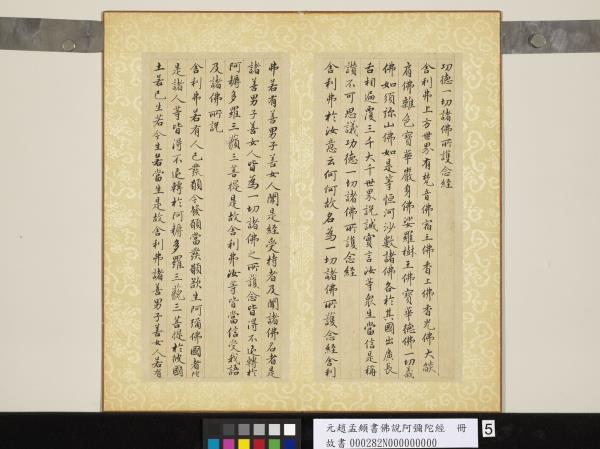 功德一切諸佛所護念經
舍利弗上方世界有梵音佛宿王佛香上佛香光佛大燄
肩佛雜色寶華嚴身佛娑羅樹王佛寶華德佛一切義
佛如須弥山佛如是等恒河沙數諸佛各於其國出廣長
舌相遍覆三千大千世界説誠實言汝等衆生當信是稱
讚不可思議功德一切諸佛所護念經
舍利弗於汝意云何何故名為一切諸佛所護念經舍利
弗若有善男子善女人聞是經受持者及聞諸佛名者是
諸善男子善女人皆為一切諸佛之所護念皆得不退轉於
阿耨多羅三藐三菩提是故舍利弗汝等皆當信受我語
及諸佛所説
舍利弗若有人已發願今發願當發願欲生阿彌佛國者
是諸人等皆得不退轉於阿耨多羅三藐三菩提於彼國
土若已生若今生若當生是故舍利弗諸善男子善女人若有
元趙孟頫書佛說阿彌陀經 冊
故書 000282N000000000
5